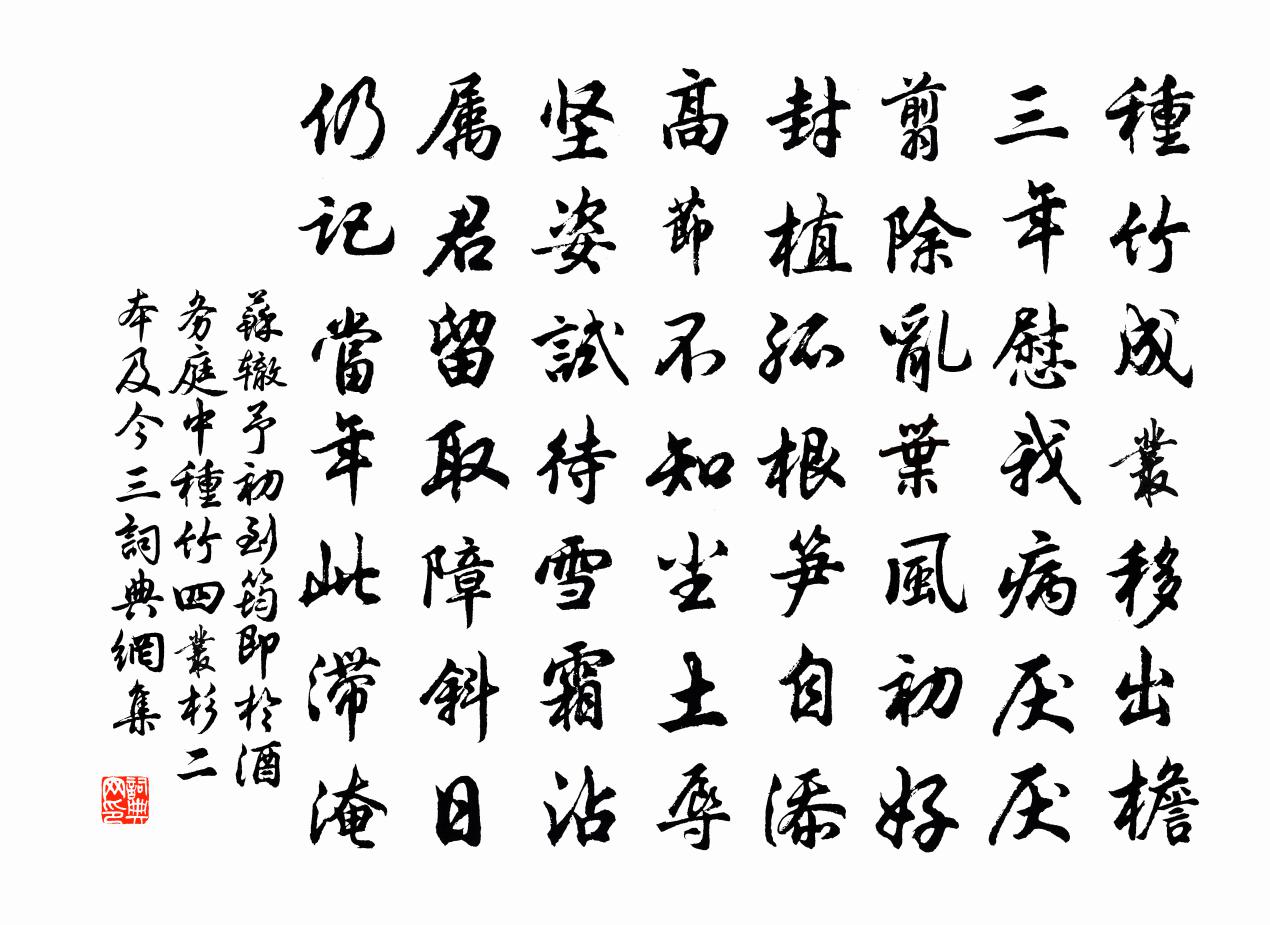 種竹成叢移出檐
三年慰我病厌厌
翦除亂葉風初好
封植孤根笋自添
高節不知尘土辱
坚姿試待雪霜沾
属君留取障斜日
仍记當年此滞淹
蘇辙予初到筠即於酒
务庭中種竹四叢杉二
本及今三詞典網集
詞典
网印